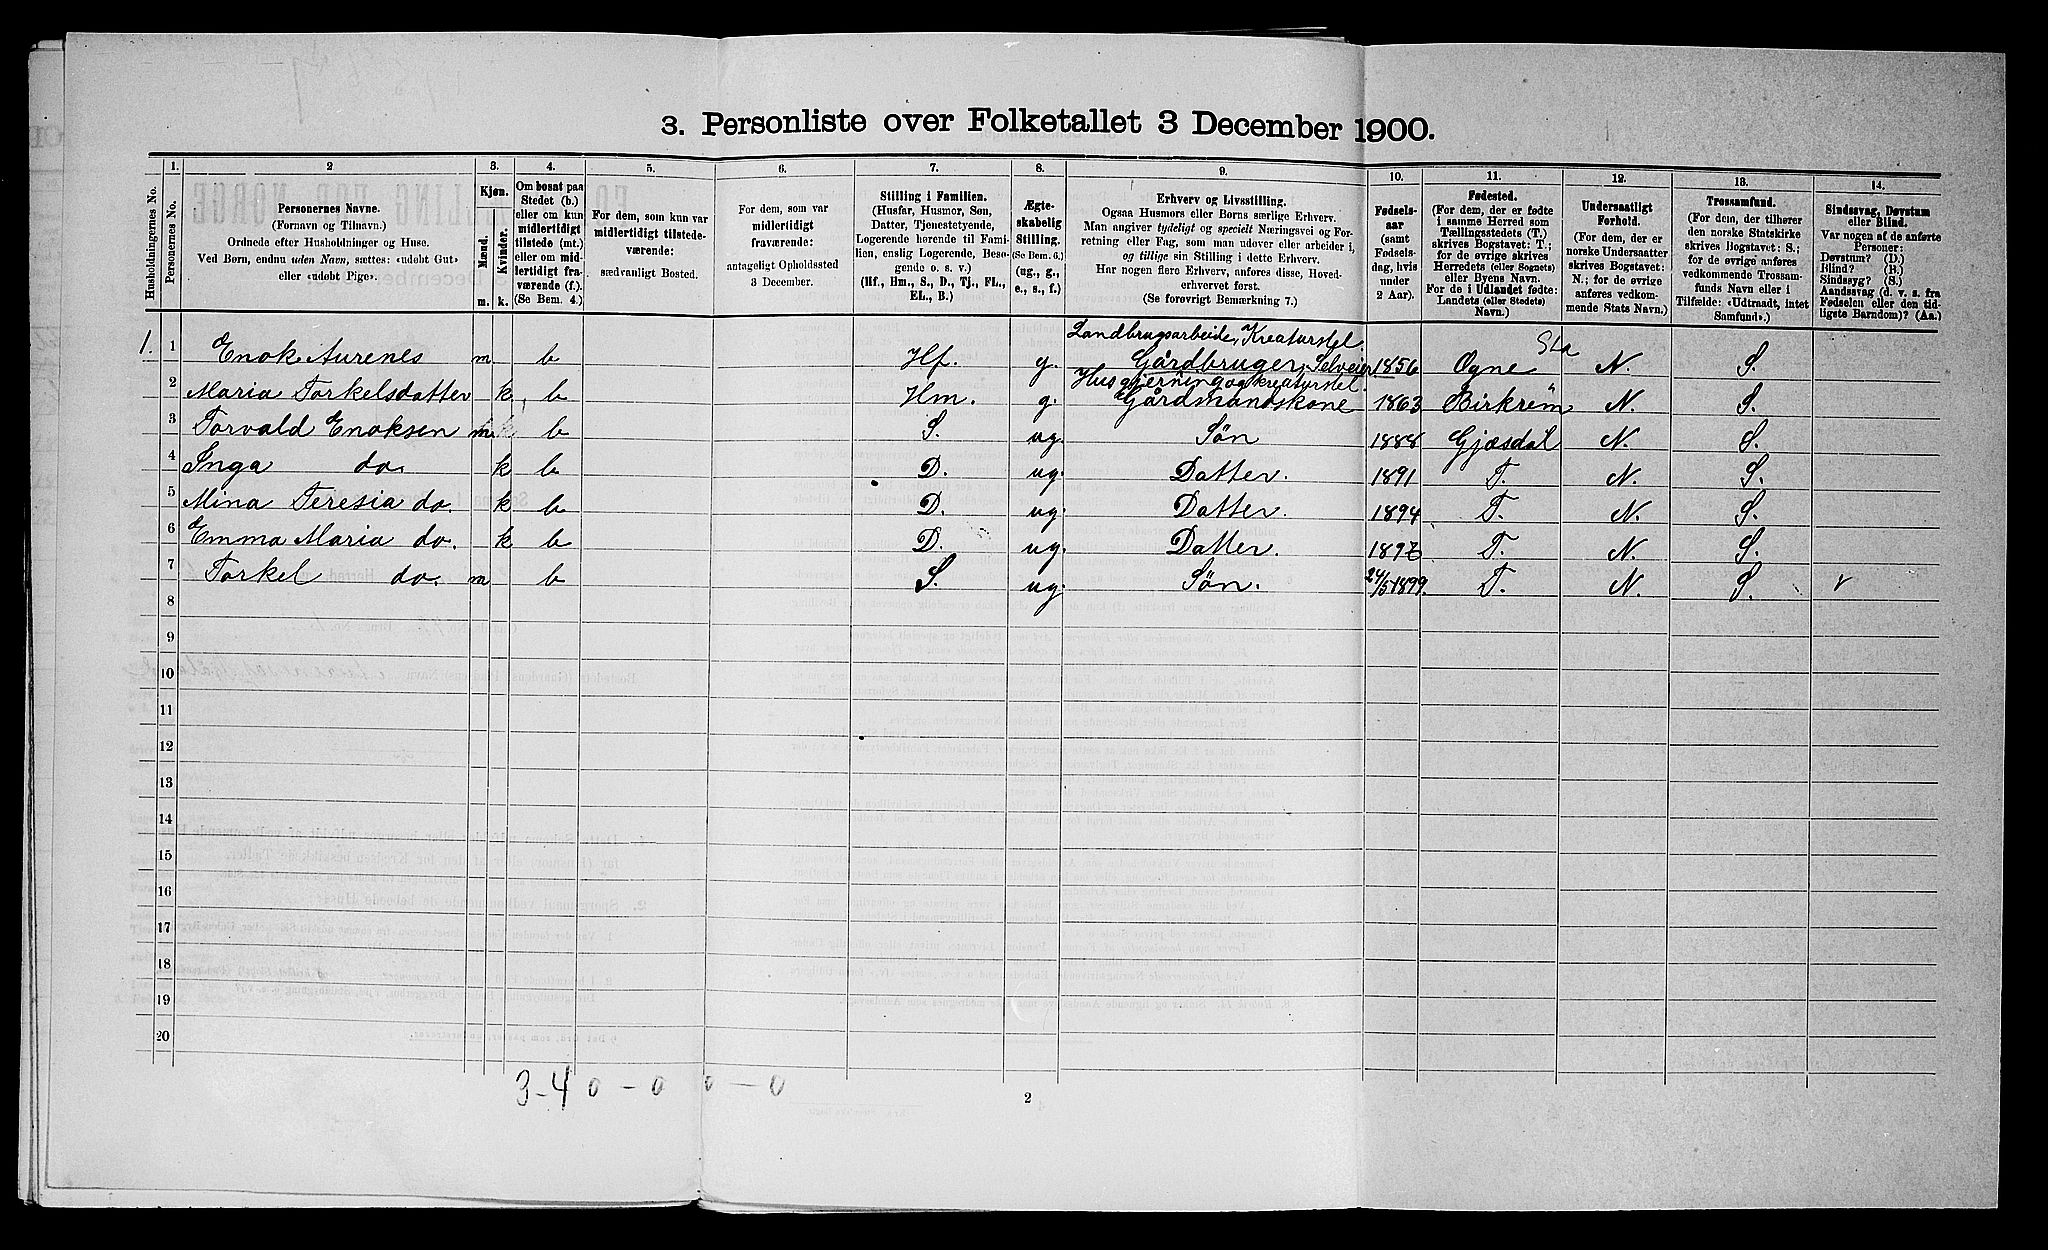 3. Personliste over Folketallet 3 December 1900.
Husholdningernes No.
1.
Personernes No.
2
Personernes Navne.
(Fornavn og Tilnavn.)
Ordnede efter Husholdninger og Huse.
Ved Børn, endnu uden Navn, sættes: «udøbt Gut»
eller «udøbt Pige».
3.
Kjøn.
Mænd.
Kvinder.
m.
k.
4.
Om bosat paa
Stedet (b.)
eller om kun
midlertidigt
tilstede (mt.)
eller om mid-
lertidigt fra-
værende (f.).
(Se Bem. 4.)
5.
For dem, som kun var
midlertidigt tilstede-
værende:
sædvanligt Bosted.
6.
For dem, som var
midlertidigt
fraværende:
antageligt Opholdssted
3 December.
7.
Stilling i Familien.
(Husfar, Husmor, Søn,
Datter, Tjenestetyende,
Logerende hørende til Fami-
lien, enslig Logerende, Besø-
gende o. s. v.)
(Hf., Hm., S., D., Tj., FL.,
EL., B.)
8.
Ægte-
skabelig
Stilling.
(Se Bem. 6.)
(ug., g.,
e., s., f.)
9.
Erhverv og Livsstilling.
Ogsaa Husmors eller Børns særlige Erhverv.
Man angiver tydeligt og specielt Næringsvei og For-
retning eller Fag, som man udøver eller arbeider i,
og tillige sin Stilling i dette Erhverv.
Har nogen flere Erhverv, anføres disse, Hoved-
erhvervet først.
(Se forøvrigt Bemærkning 7.)
10.
Fødsels-
aar
(samt
Fødsels-
dag, hvis
under
2 Aar).
11.
Fødested.
(For dem, der er fødte
i samme Herred som
Tællingsstedets (T.)
skrives Bogstavet: T.;
for de øvrige skrives
Herredets (eller Sognets)
eller Byens Navn.
For de i Udlandet fødte:
Landets (eller Stedets)
Navn.)
12.
Undersaatligt
Forhold.
(For dem, der er
norske Undersaatter
skrives Bogstavet:
N.; for de øvrige
anføres vedkom-
mende Stats Navn.)
13.
Trossamfund.
(For dem, der tilhører
den norske Statskirke
skrives Bogstavet: S.;
for de øvrige anføres
vedkommende Trossam-
funds Navn eller i
Tilfælde: «Udtraadt, intet
Samfund».)
14.
Sindssvag, Døvstum
eller Blind.
Var nogen af de anførte
Personer:
Døvstum? (D.)
Blind? (B.)
Sindssyg? (S.)
Aandssvag (d. v. s. fra
Fødselen eller den tid-
ligste Barndom)? (Aa.)
Landbrugsarbeide, Kreaturstel.
1. 1 Enok Aurenes m b Hf. g. Gårdbruger, Selveier 1856 Ogne Sta N. S.
Husgjerning og kreaturstel.
2 Maria Torkelsdatter k b Hm. g. Gårdmandskone 1863 Birkrem N. S.
3 Torvald Enoksen m b S. ug. Søn 1888 Gjæsdal N. S.
4 Inga do k b D. ug. Datter. 1891 T. N. S.
5 Mina Teresia do. k b D. ug. Datter. 1894 T. N. S.
6 Emma Maria do. k b D. ug. Datter. 1897 T. N. S.
7 Torkel do. m b S. ug. Søn. 24/5 1899. T. N. S. v
8
9
10
11
12
13
14
15
16
17
18
19
20
3-4 0 - 0 0 - 0
2